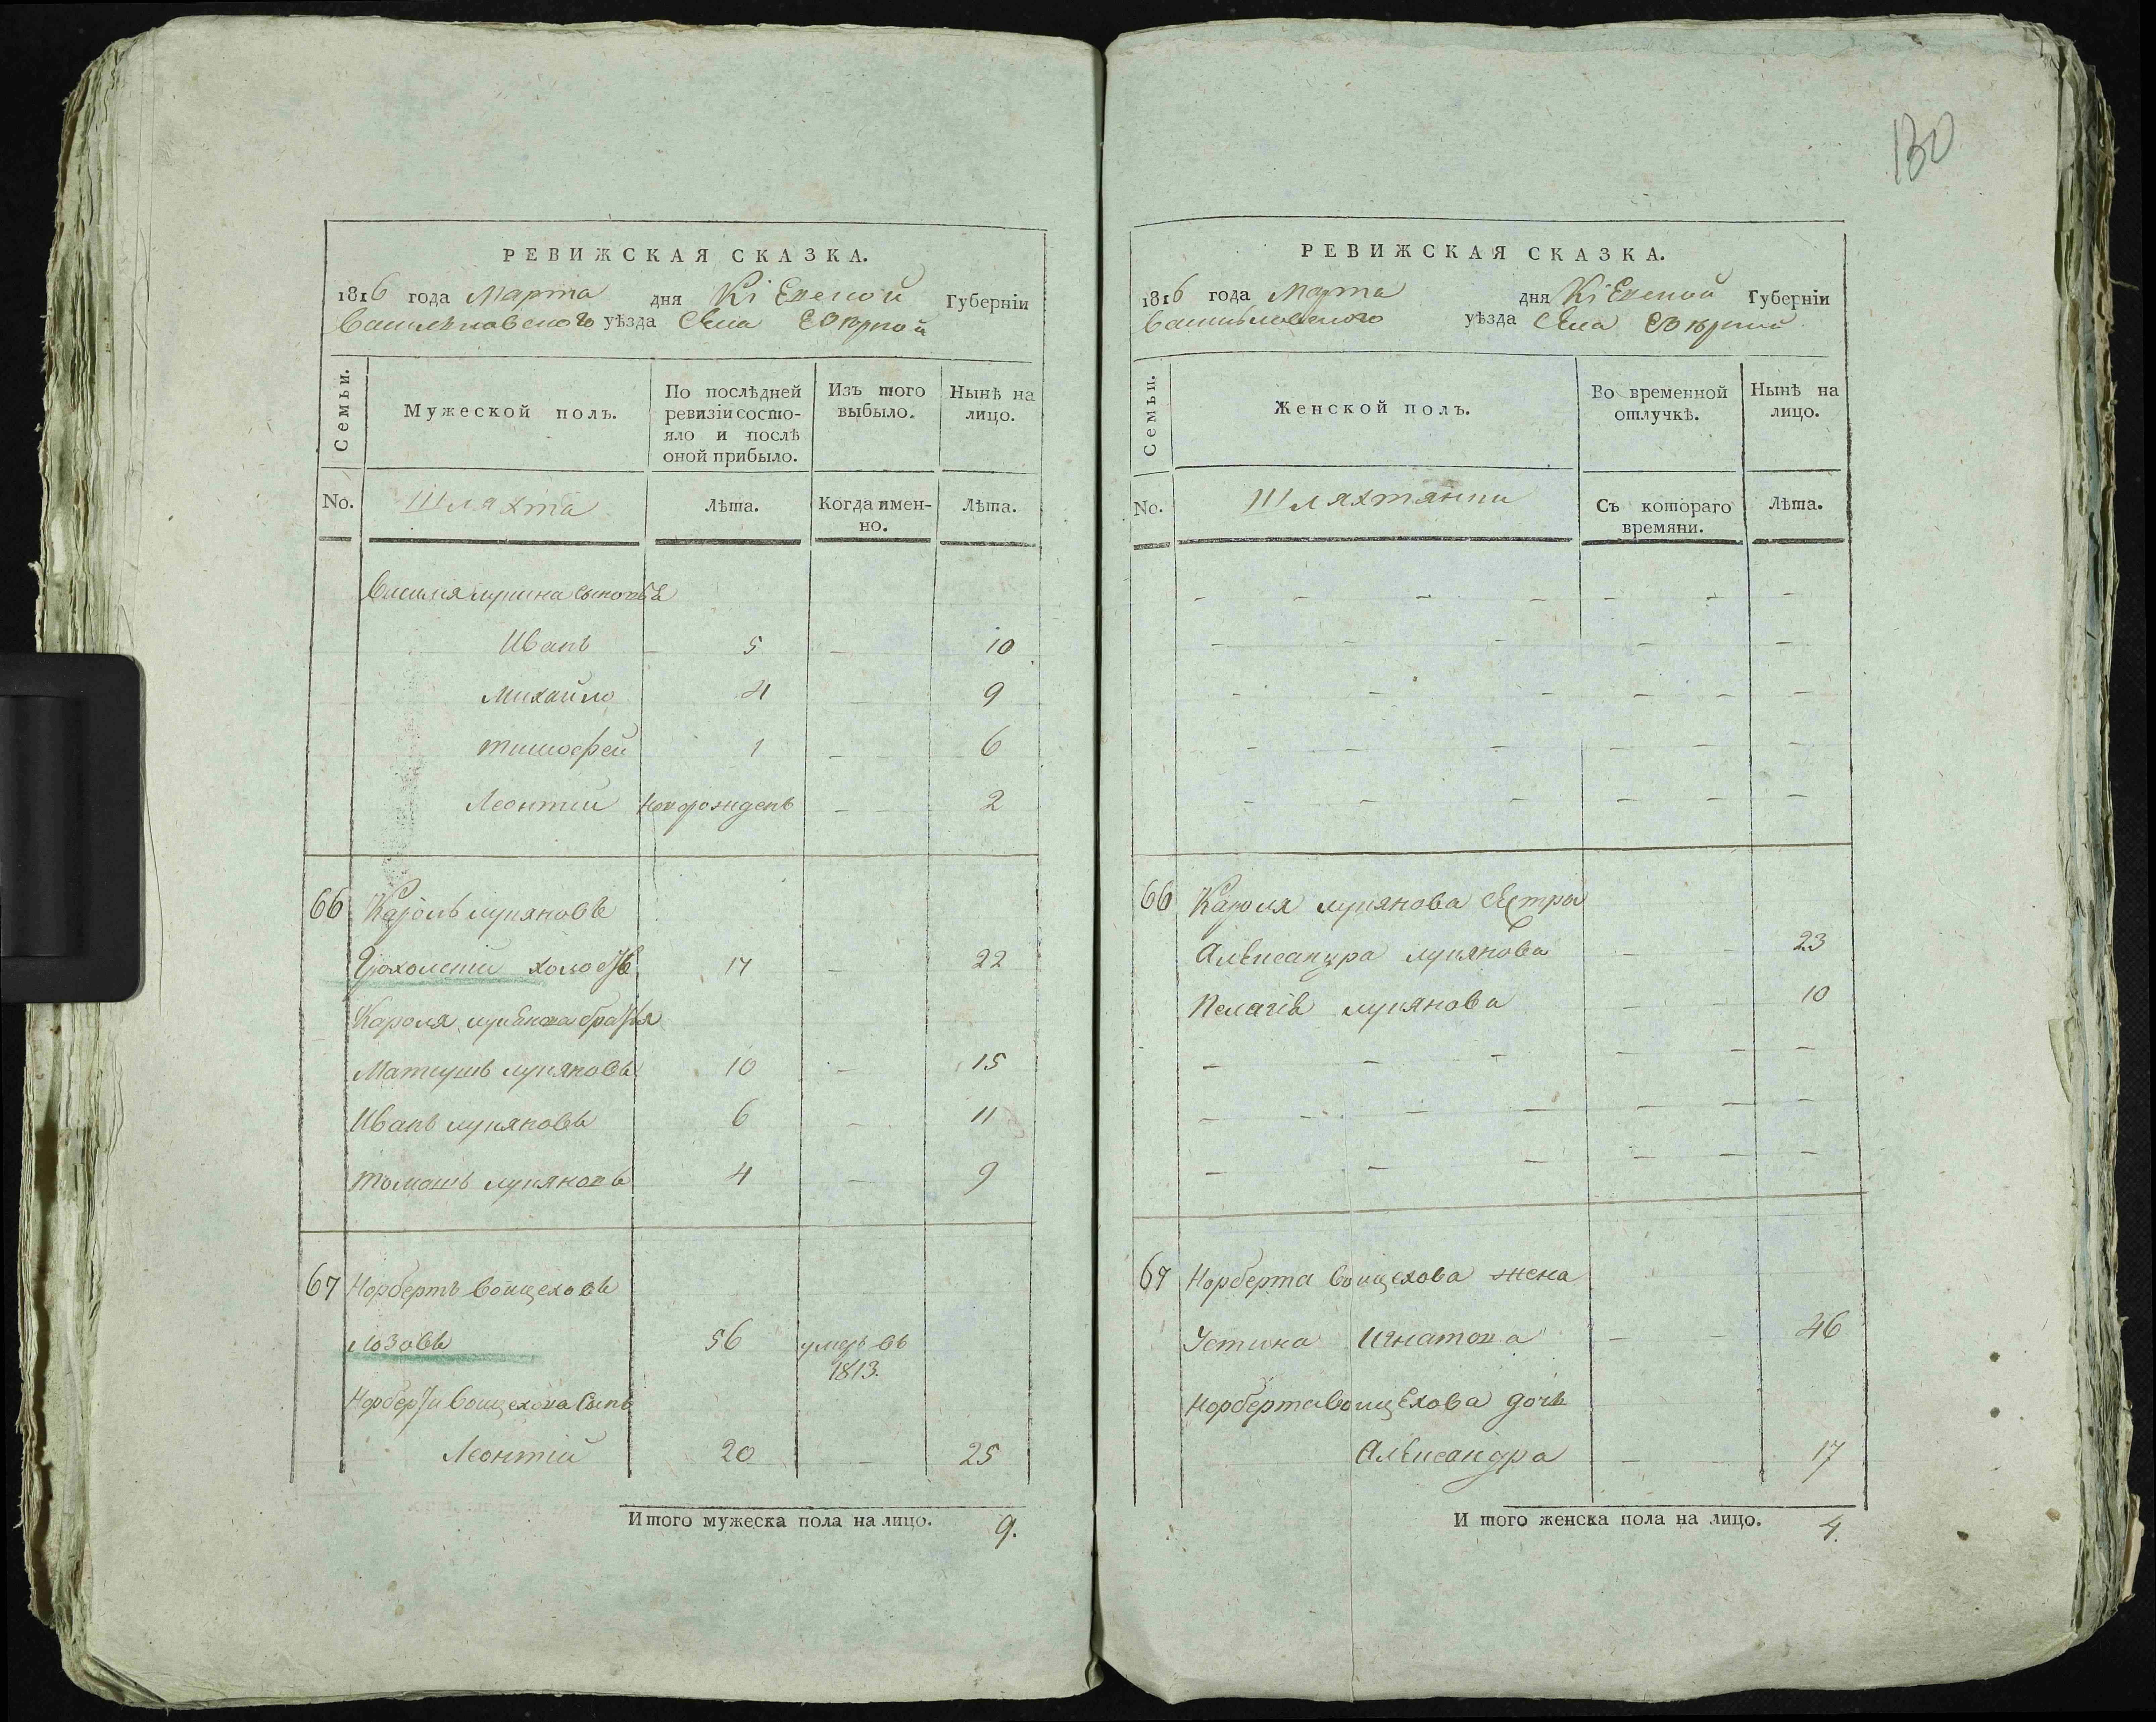 130
РЕВИЖСКАЯ СКАЗКА.
1816 года Марта дня Кіевской Губерніи
Васильковского уѣзда Села
Семьи.
Мужеской полъ.
По послѣдней ревизіи состояло и послѣ оной прибыло.
Изъ того выбыло.
Нынѣ на лицо.
No.
Шляхта
Лѣта.
Когда именно.
Лѣта.
сыновья
Иванъ 5 — 10
Михайло 4 — 9
Тимофей 1 — 6
Леонтий новорожденъ — 2
66 Кароль Лукяновъ
холостъ 17 — 22
Кароля Лукянова братья
Матеушъ Лукяновъ 10 — 15
Иванъ Лукяновъ 6 — 11
Томашъ Лукяновъ 4 — 9
67 Норбертъ Войцеховъ
Лозовъ 56 умеръ въ 1813.
Норберта Войцехова Сынъ
Леонтій 20 — 25
Итого мужеска пола на лицо. 9.
РЕВИЖСКАЯ СКАЗКА.
1816 года Марта дня Кіевской Губерніи
Васильковского уѣзда Села
Семьи.
Женской полъ.
Во временной отлучкѣ.
Нынѣ на лицо.
No.
Шляхтянки
Съ котораго времяни.
Лѣта.
66 Кароля Лукянова сестры
Александра Лукянова — — 23
Пелагія Лукянова — — 10
67 Норберта Войцехова жена
Устина Игнатова — — 46
Норберта Войцехова дочь
Александра — — 17
И того женска пола на лицо. 4.